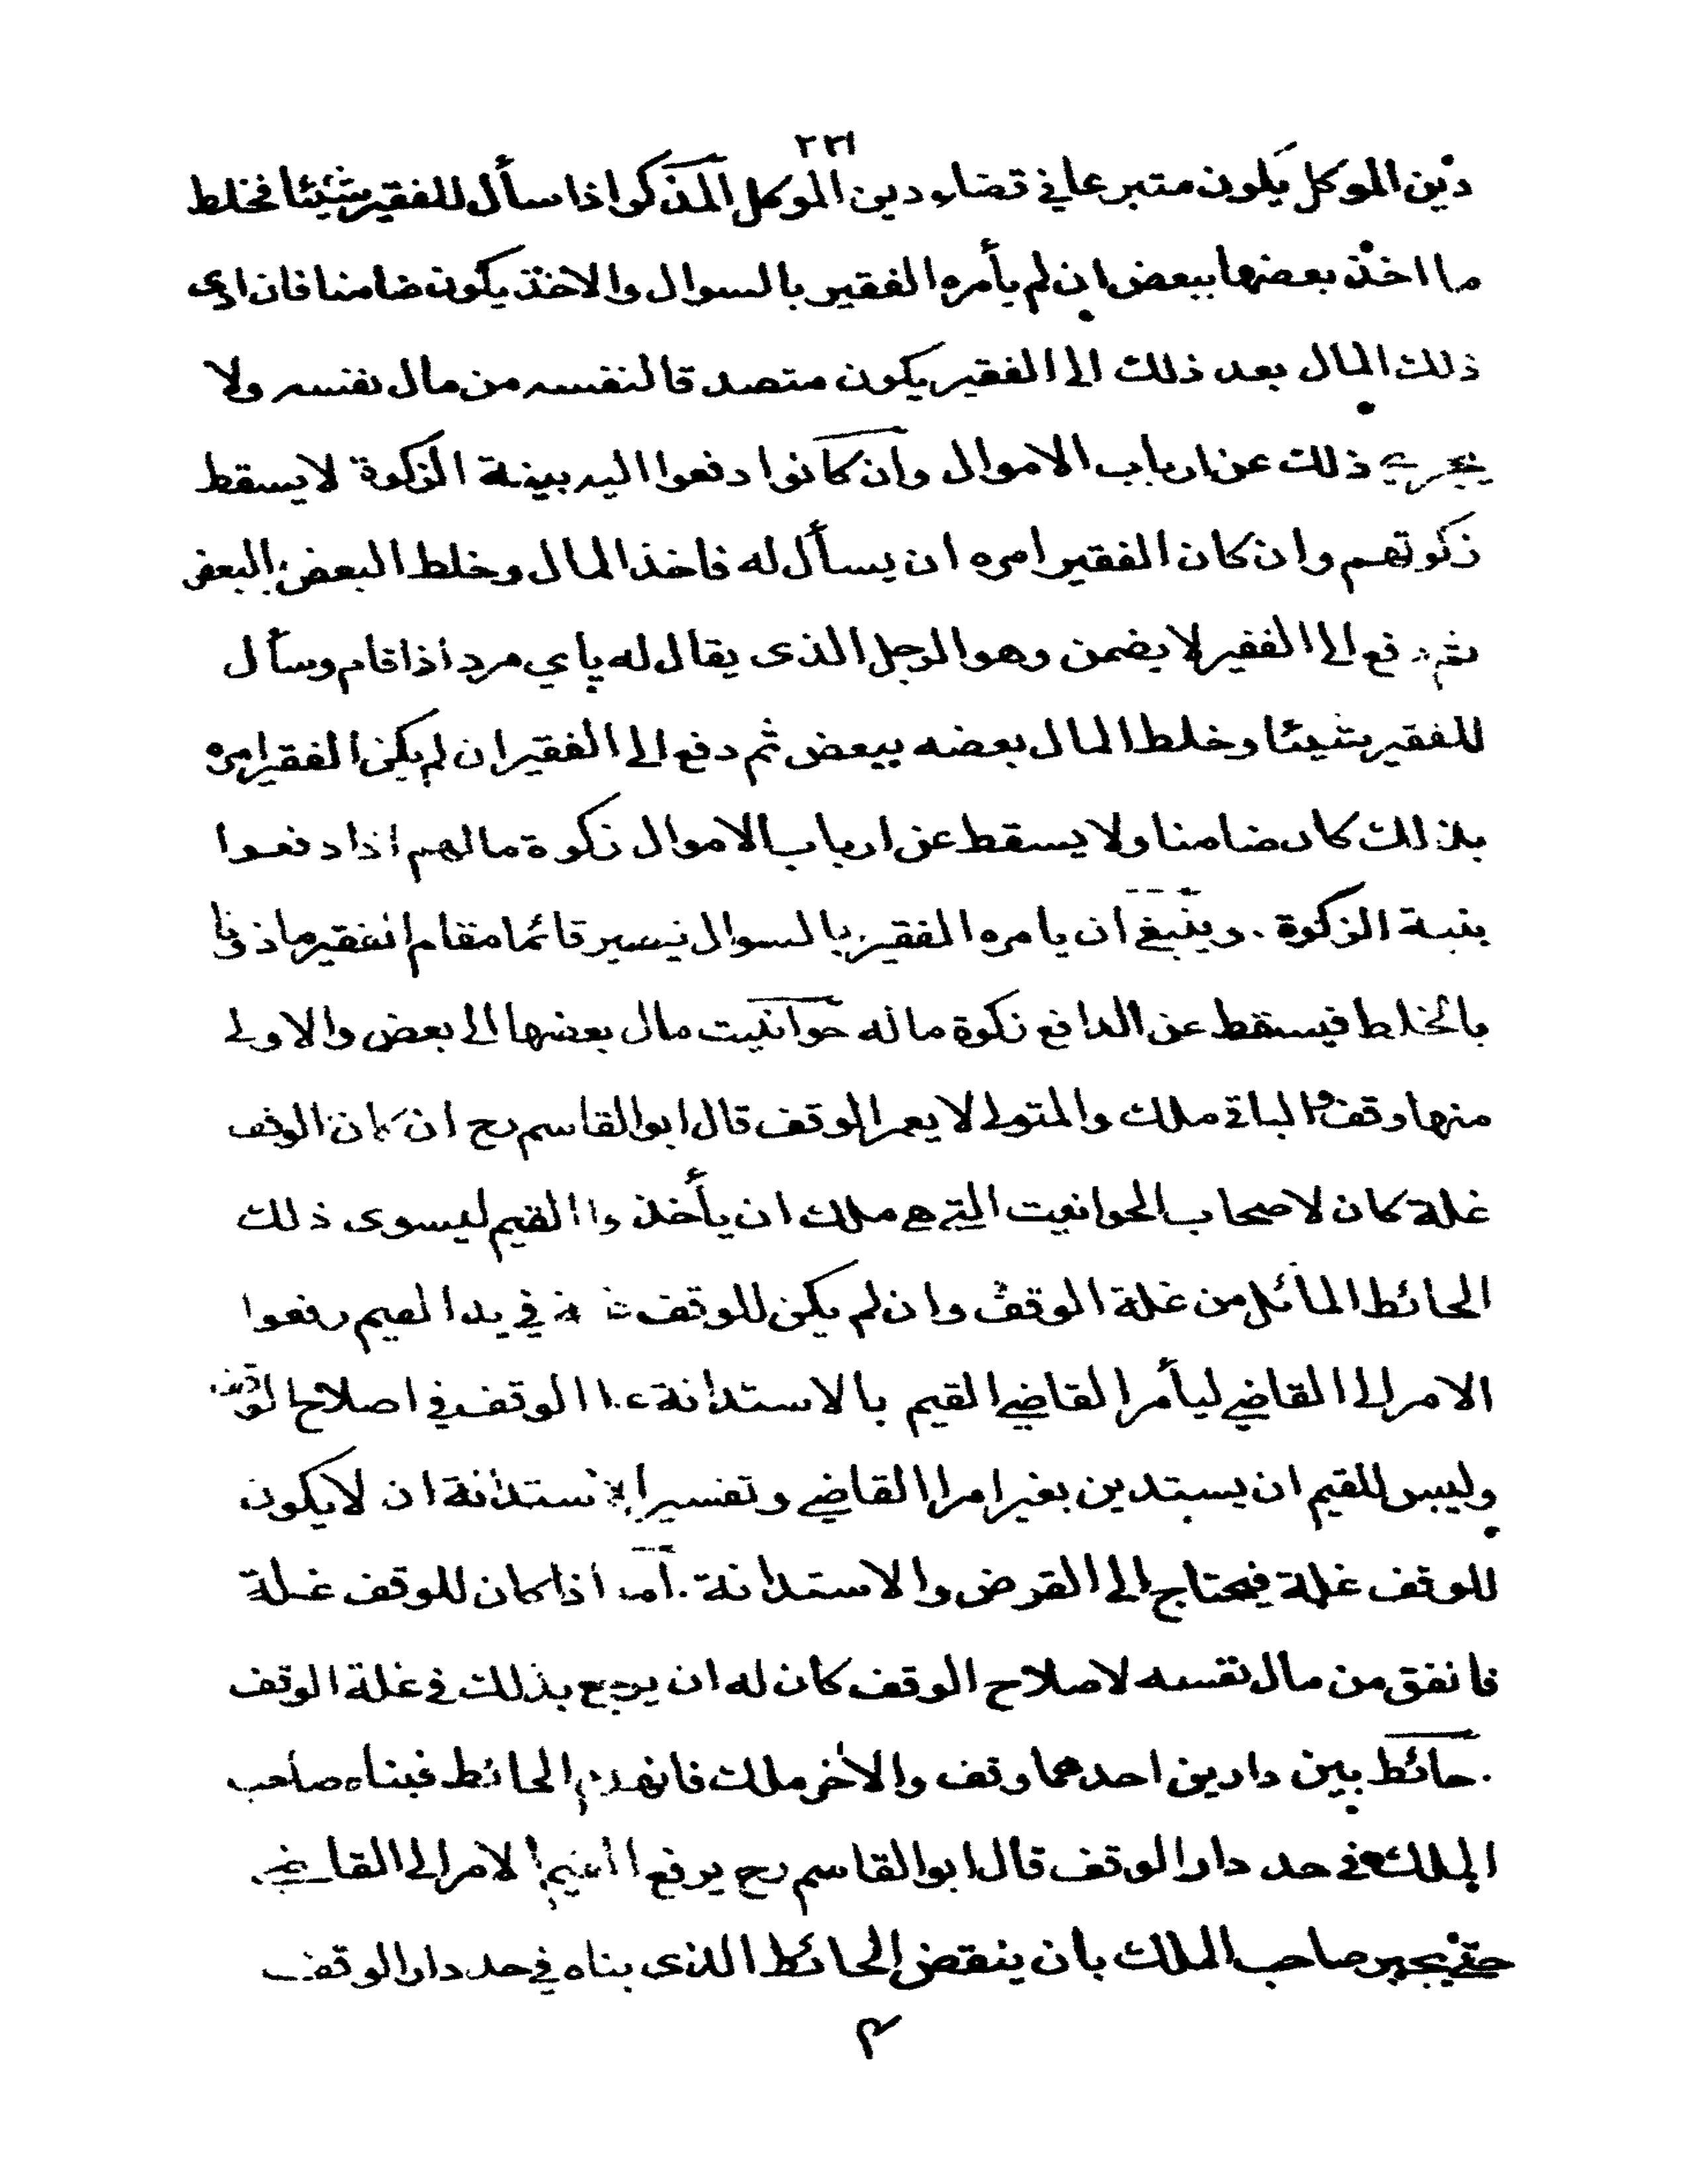 ٢٢١
دين الموكل يكون متبرعا في قضاء دين الموكل المذكر اذا سأل للفقير شيئا فخلط
ما اخذ بعضها ببعض ان لم يأمره الفقير بالسوال والاخذ يكون ضامنا فان ادى
ذلك المال بعد ذلك الى الفقير يكون متصدقا لنفسه من مال نفسه ولا
يجزى ذلك عن ارباب الاموال وان كانوا دفعوا اليه بينة الزكوة لا يسقط
زكوتهم وان كان الفقير امره ان يسأل له فاخذ المال وخلط البعض بالبعض
ثم دفع الى الفقير لا يضمن وهو الرجل الذى يقال له پاي مرد اذا قام وسأل
للفقير شيئا وخلط المال بعضه ببعض ثم دفع الى الفقير ان لم يكن الفقير امره
بذلك كان ضامنا ولا يسقط عن ارباب الاموال زكوة مالهم اذا دفعوا
بنية الزكوة . وينبغي ان يامره الفقير بالسوال فيصير قائما مقام الفقير ماذونا
بالخلط فيسقط عن الدافع زكوة ماله حوانيت مال بعضها الى بعض والاولى
منها وقف والباقي ملك والمتولى لا يعمر الوقف قال ابوالقاسم رح ان كان الوقف
غلة كان لاصحاب الحوانيت التي هي ملك ان يأخذوا القيم ليسوى ذلك
الحائط المائل من غلة الوقف وان لم يكن للوقف غلة في يد القيم رفعوا
الامر الى القاضي ليأمر القاضي القيم بالاستدانة على الوقف في اصلاح الوقف
وليس للقيم ان يستدين بغير امر القاضي وتفسير الاستدانة ان لا يكون
للوقف غلة فيحتاج الى القرض والاستدانة . اما اذا كان للوقف غلة
فانفق من مال نفسه لاصلاح الوقف كان له ان يرجع بذلك في غلة الوقف
. حائط بين دارين احدهما وقف والاخر ملك فانهدم الحائط فبناه صاحب
الملك في حد دار الوقف قال ابوالقاسم رح يرفع القيم الامر الى القاضي
حتى يجبر صاحب الملك بان ينقض الحائط الذى بناه في حد دار الوقف